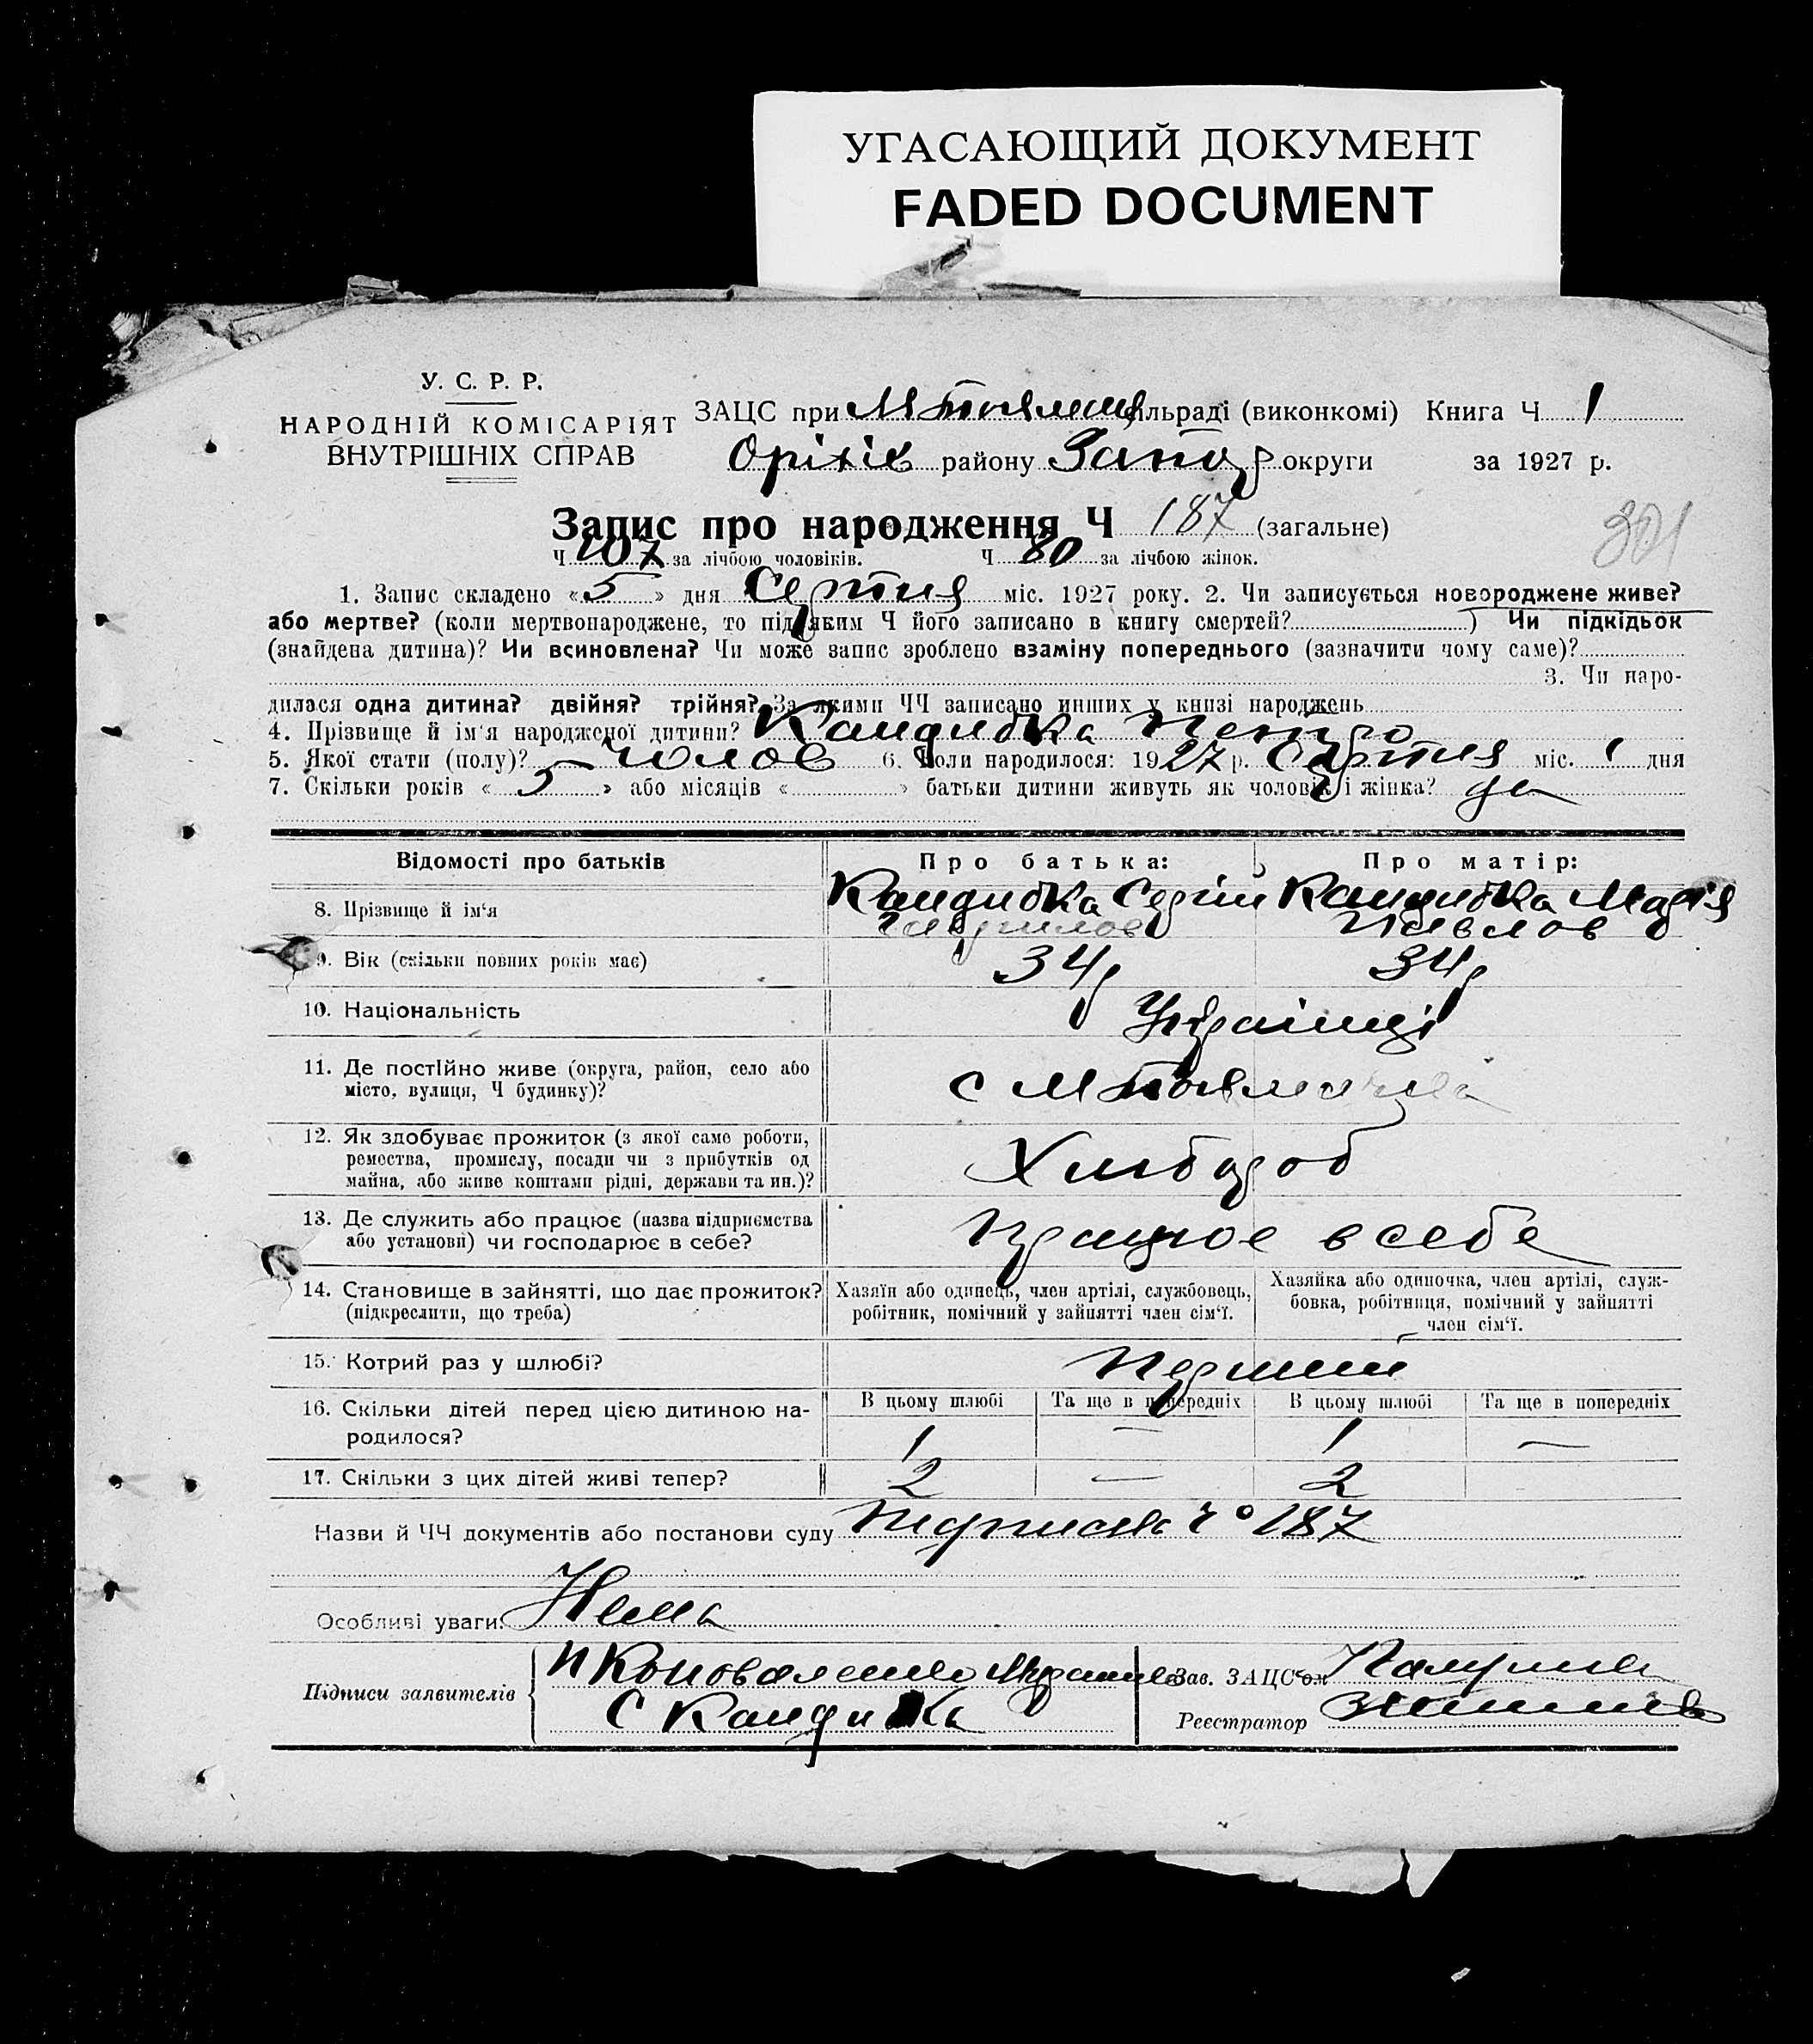 УГАСАЮЩИЙ ДОКУМЕНТ
FADED DOCUMENT
У. С. Р. Р.
НАРОДНІЙ КОМІСАРІЯТ
ВНУТРІШНІХ СПРАВ
ЗАЦС при сільраді (виконкомі) Книга Ч 1
Оріхів району Запор округи за 1927 р.
Запис про народження Ч 187 (загальне)
301
Ч 107 за лічбою чоловіків. Ч 80 за лічбою жінок.
1. Запис складено « 5 » дня Серпня міс. 1927 року. 2. Чи записується новороджене живе?
або мертве? (коли мертвонароджене, то під яким Ч його записано в книгу смертей? ) Чи підкідьок
(знайдена дитина)? Чи всиновлена? Чи може запис зроблено взаміну попереднього (зазначити чому саме)?
3. Чи наро-
дилася одна дитина? двійня? трійня? За якими ЧЧ записано инших у книзі народжень
4. Прізвище й ім'я народженої дитини? Кандибка Петро
5. Якої стати (полу)? чолов 6. Коли народилося: 1927 р. Серпня міс. 1 дня
7. Скільки років « 5 » або місяців « » батьки дитини живуть як чоловік і жінка? да
Відомості про батьків Про батька: Про матір:
8. Прізвище й ім'я Кандибка Сергій Кандибка Марія
Гаврилов Павлов
9. Вік (скільки повних років має) 34р 34р
10. Національність Українці
11. Де постійно живе (округа, район, село або
місто, вулиця, Ч будинку)? с
12. Як здобуває прожиток (з якої саме роботи,
ремества, промислу, посади чи з прибутків од
майна, або живе коштами рідні, держави та ин.)? Хлібороб
13. Де служить або працює (назва підприємства
або установи) чи господарює в себе? працює в себе
14. Становище в зайнятті, що дає прожиток?
(підкреслити, що треба)
Хазяїн або одинець, член артілі, службовець,
робітник, помічний у зайнятті член сім'ї.
Хазяйка або одиночка, член артілі, служ-
бовка, робітниця, помічний у зайнятті
член сім'ї.
15. Котрий раз у шлюбі? Перший
16. Скільки дітей перед цією дитиною на-
родилося?
В цьому шлюбі Та ще в попередніх В цьому шлюбі Та ще в попередніх
1 — 1 —
17. Скільки з цих дітей живі тепер? 2 — 2
Назви й ЧЧ документів або постанови суду ч° 187
Особливі уваги: Нема
Підписи заявителів
П Коноваленко
С Кандибка
Зав. ЗАЦС'ом
Реєстратор